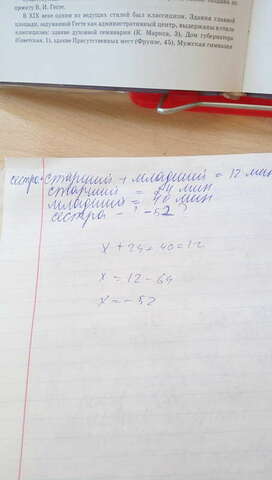 проекту В. И. Гесте.
В XIX веке одним из ведущих стилей был классицизм. Здания главной
площади, задуманной Гесте как административный центр, выдержаны в стиле
классицизма: здание духовной семинарии (К. Маркса, 3), Дом губернатора
(Советская, 1), здание Присутственных мест (Фрунзе, 45), Мужская гимназия
сестра+старший + младший = 12 мин
старший = 24 мин
младший = 40 мин
сестра - ? -52?
x + 24 + 40 = 12
x = 12 - 64
x = - 52